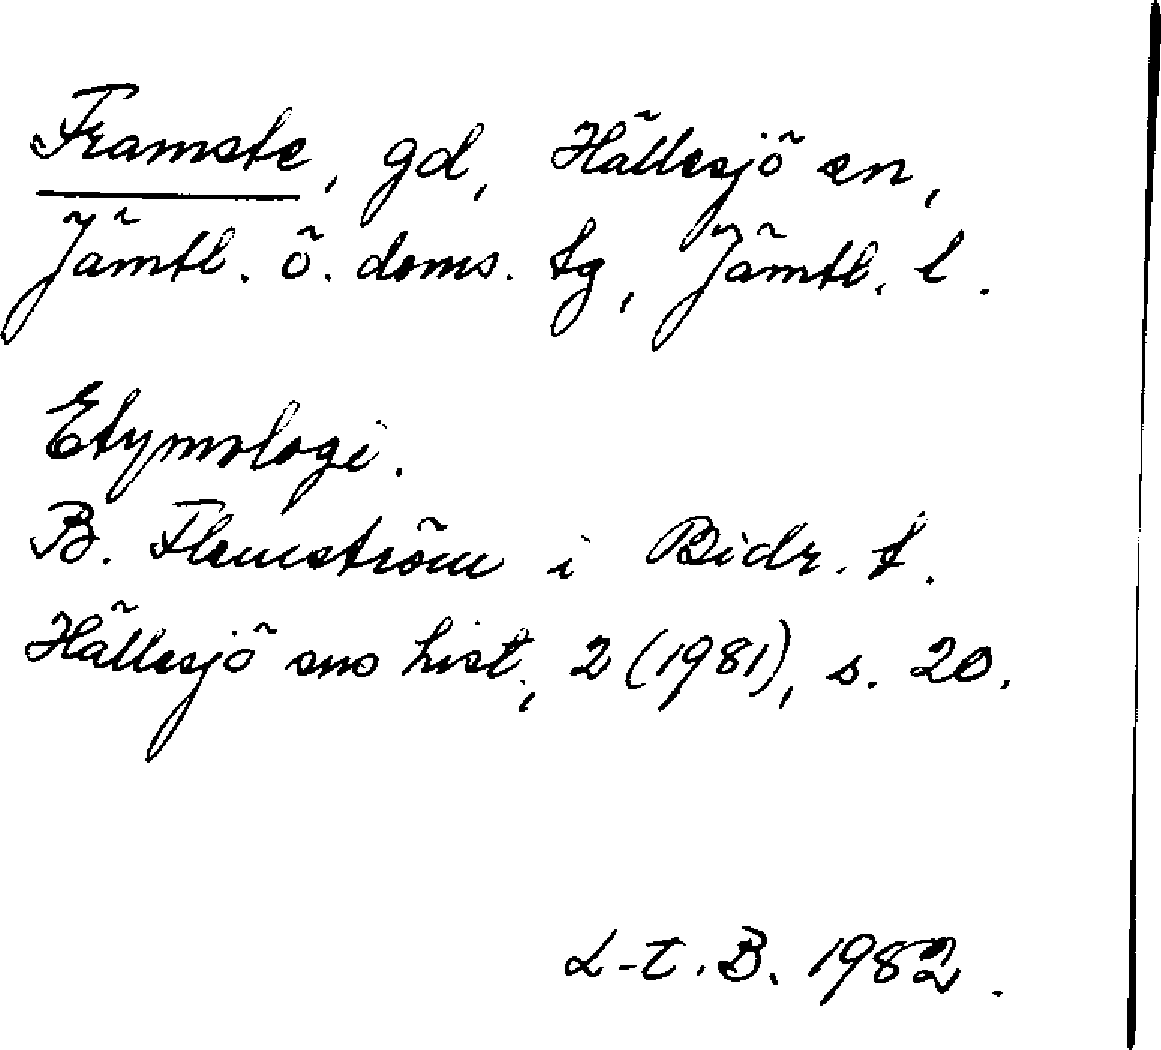 Framste, gd, Hällesjö sn,
Jämtl. ö. doms. tg, Jämtl. l.
Etymologi.
B. Flemström i Bidr. t.
Hällesjö sns hist., 2 (1981), s. 20.
L-E. B. 1982.